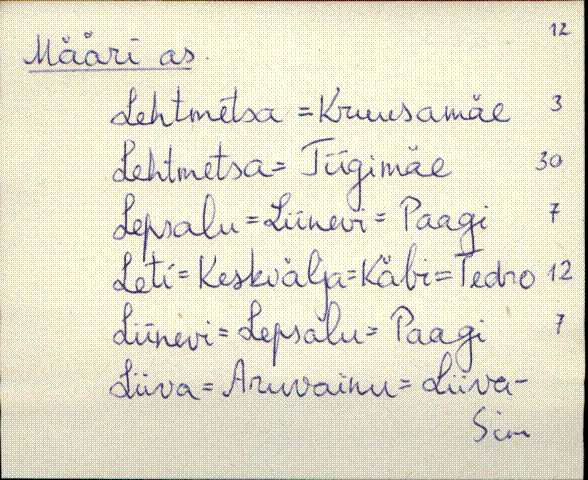 12
Määri as.
Lehtmetsa = Kruusamäe 3
Lehtmetsa = Tiigimäe 30
Lepsalu = Liinevi = Paagi 7
Leti = Keskvälja = Käbi = Tedro 12
Liinevi = Lepsalu = Paagi 7
Liiva = Aruvainu = Liiva-
Sim